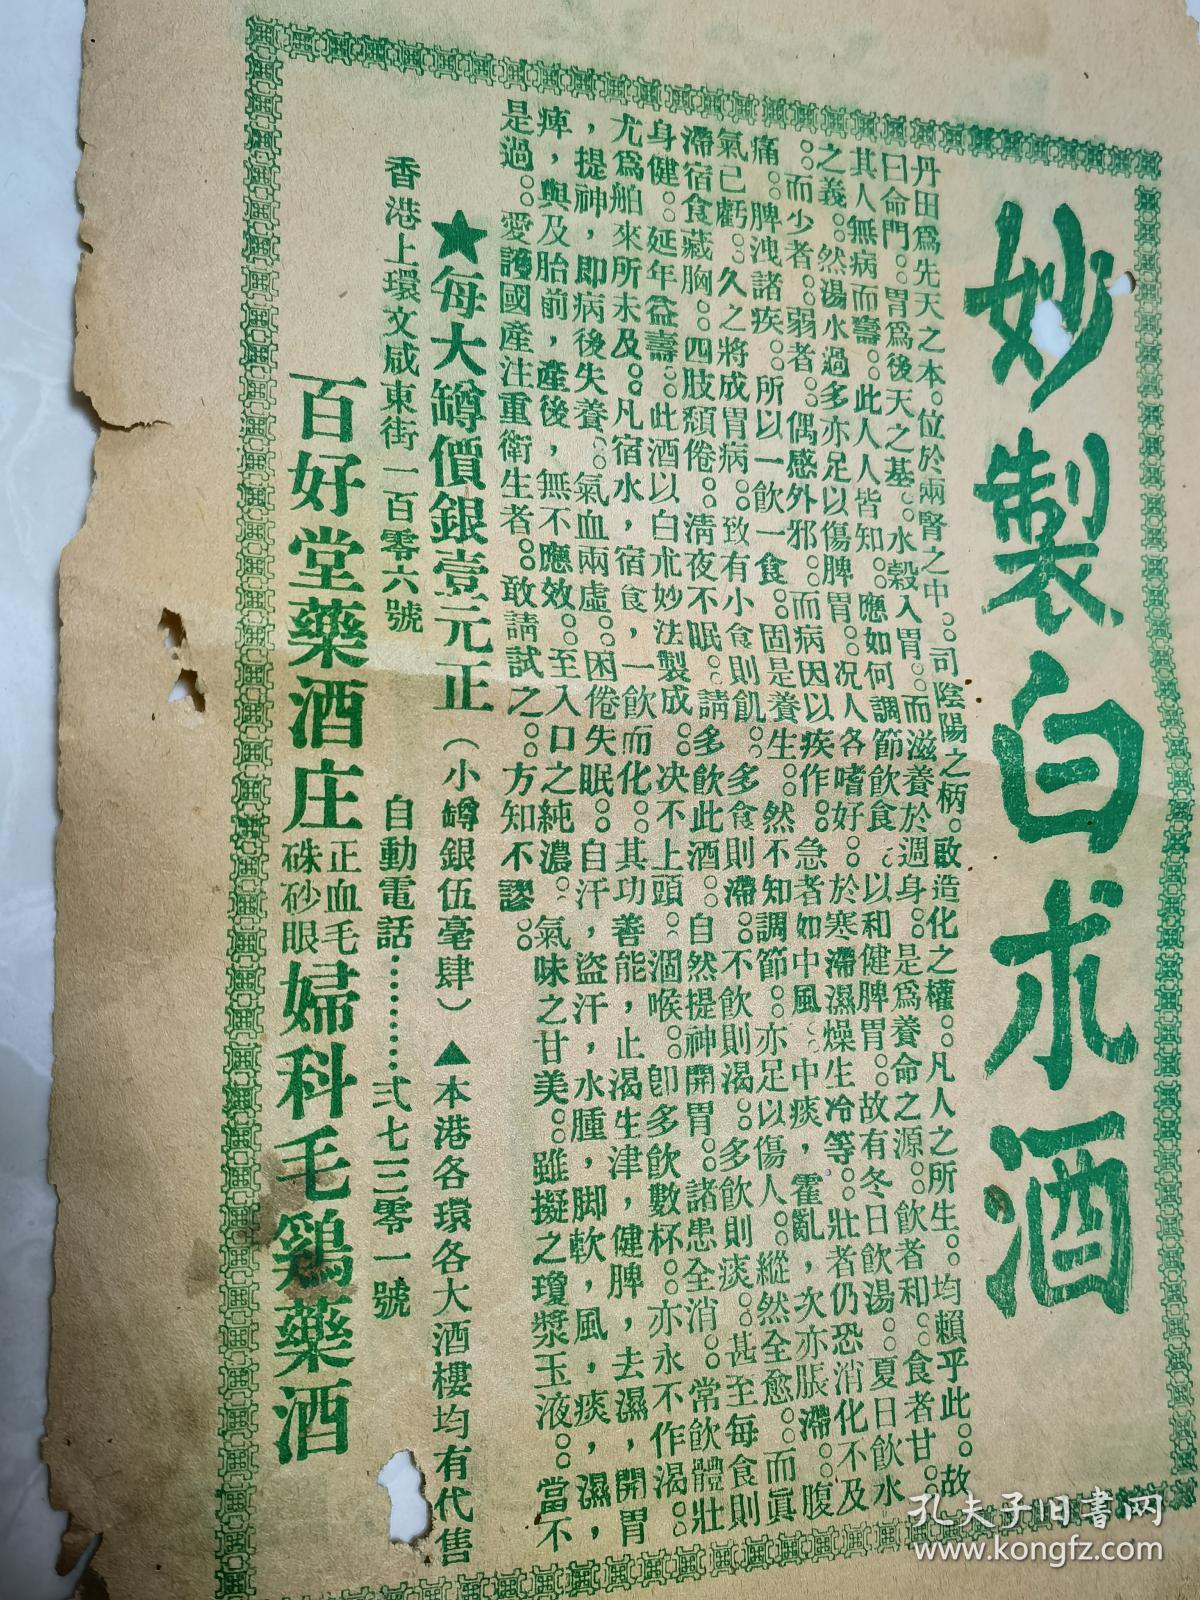 妙製白朮酒
丹田爲先天之本。位於兩腎之中。。司陰陽之柄。啟造化之權。。凡人之所生。。均賴乎此。。故
曰命門。。胃爲後天之基。。水穀入胃。。而滋養於週身。。是爲養命之源。。飲者和。。食者甘。。
其人無病而壽。。此人人皆知。。應如何調節飲食。以和健脾胃。。故有冬日飲湯。。夏日飲水
之義。。然湯水過多亦足以傷脾胃。。况人各嗜好。。於寒滯濕燥生冷等。。壯者仍恐消化不及
。。而少者。。弱者。。偶感外邪。。而病因以疾作。。急者如中風。。中痰，霍亂，次亦脹滯。。腹
痛。。脾洩諸疾。。所以一飲一食。。固是養生。。然不知調節。。亦足以傷人。。縱然全愈。。而眞
氣已虧。。久之將成胃病。。致有小食則飢。。多食則滯。。不飲則渴。。多飲則痰。。甚至每食則
滯宿食藏胸。。四肢頹倦。。淸夜不眠。。請多飲此酒。。自然提神開胃。。諸患全消。。常飲體壯
身健。。延年益壽。。此酒以白朮妙法製成。。决不上頭。。涸喉。。卽多飲數杯。。亦永不作渴。。
尤爲舶來所未及。。凡宿水，宿食，一飲而化。。其功善能，止渴生津，健脾，去濕，開胃
，提神，卽病後失養。。氣血兩虛。。困倦失眠。。自汗，盜汗，水腫，脚軟，風，痰，濕，
痺，與及胎前，產後，無不應效。。至入口之純濃。。氣味之甘美。。雖擬之瓊漿玉液。。當不
是過。。愛護國產注重衛生者。。敢請試之。。方知不謬。。
★每大罇價銀壹元正（小罇銀伍毫肆）▲本港各環各大酒樓均有代售
香港上環文咸東街一百零六號 自動電話…………弍七三零一號
百好堂藥酒庄 正血毛硃砂眼 婦科毛鷄藥酒
孔夫子旧書网
www.kongfz.com